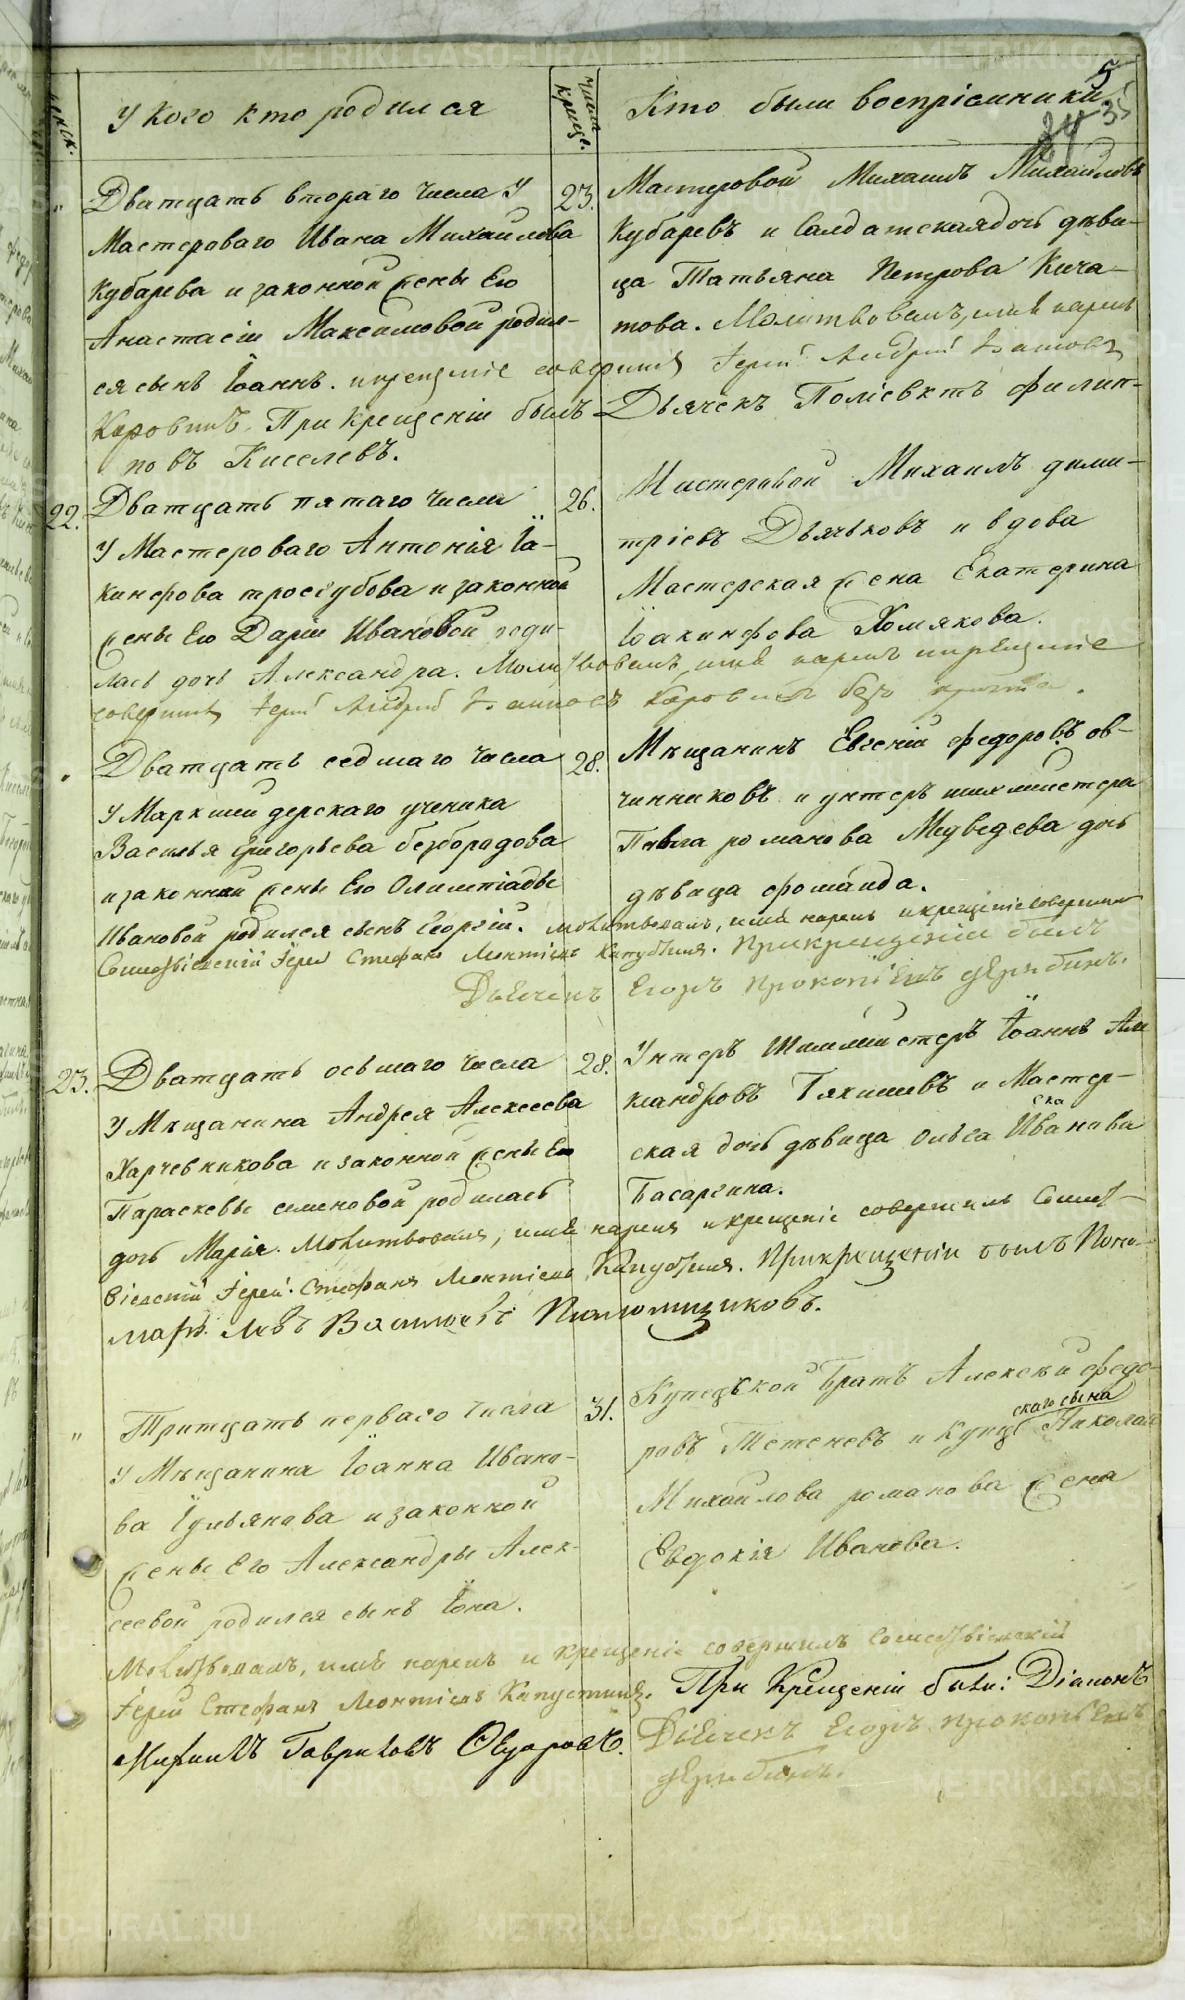 5
35
У кого кто родился
числа креще.
Кто были воспріемники
Дватцать втораго числа У
Мастероваго Ивана Михайлова
Кубарева и законной жены Его
Анастасіи Максимовой родил-
ся сынъ Іоаннъ. и крещеніе совершилъ Іерей Андрей Іоанновъ
Коровинъ. При Крещеніи былъ Дьячекъ Поліевктъ Филип-
повъ Киселевъ.
23.
Мастеровой Михаилъ Михайловъ
Кубаревъ и Салдатская дочь дѣви-
ца Татьяна Петрова Кича-
това. Молитвовалъ, имя нарекъ
22.
Дватцать пятаго числа
У Мастероваго Антонія Іа-
кинфова Трос губова и законной
жены Его Даріи Ивановой роди-
лась дочь Александра. Молитвовалъ, имя нарекъ и крещеніе
совершилъ Іерей Андрей Іоанновъ Коровинъ безъ причта.
26.
Мастеровой Михаилъ Дими-
тріевъ Дьячьковъ и вдова
Мастерская жена Екатерина
Іоакинфова Хомякова.
Дватцать седмаго числа
У Маркшейдерскаго ученика
Василья Григорьева Безбородова
и законной жены Его Олимпіады
Ивановой родился сынъ Георгій. Молитвовалъ, имя нарекъ и крещеніе совершилъ
Іерей Стефанъ Леонтіевъ Капустинъ. При крещеніи былъ
Дьячекъ Егоръ Прокопьевъ Дерябинъ.
28.
Мѣщанинъ Евгеній Федоровъ Ов-
чинниковъ и унтеръ шихмейстера
Павла Романова Медведева дочь
дѣвица Фомаида.
23.
Дватцать осьмаго числа
У Мѣщанина Андрея Алексеева
Харчевникова и законной жены Ево
Параскевы Семеновой родилась
дочь Марія. Молитвовалъ, имя нарекъ и крещеніе совершилъ Сылво-
віевскій Іерей Стефанъ Леонтіевъ Капустинъ. При крещеніи былъ Поно-
марь Левъ Васильевъ Паломщиковъ.
28.
Унтеръ Шихмейстеръ Іоаннъ Але
ксандровъ Тякишевъ и Мастер-
ская дочь дѣвица Ольга Иванова
Басаргина.
Тритцать перваго числа
У Мѣщанина Іоанна Ивано-
ва Ульянова и законной
жены Его Александры Алек-
сеевой родился сынъ Іона.
Молитвовалъ, имя нарекъ и крещеніе совершилъ
Іерей Стефанъ Леонтіевъ Капустинъ. При Крещеніи были: Діаконъ
Гавриловъ Дьячекъ Егоръ Прокопьевъ
Дерябинъ.
31.
Купецькой Братъ Алексѣй Федо-
ровъ Тетеневъ и Купцескаго сына Николая
Михайлова Романова жена
Евдокія Иванова.